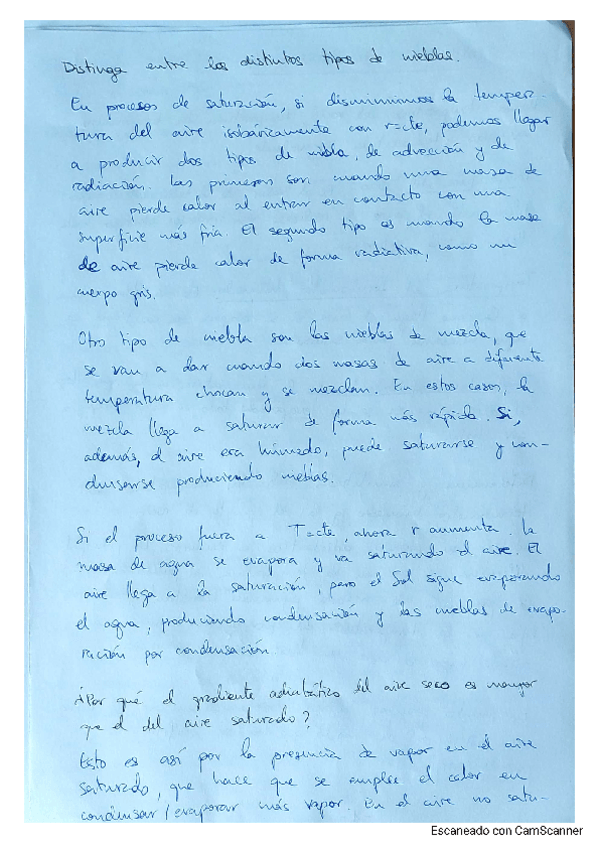 Distinga entre los distintos tipos de nieblas.
En procesos de saturación, si disminuimos la tempera-
tura del aire isobáricamente con r=cte, podemos llegar
a producir dos tipos de niebla, de advección y de
radiación. Las primeras son cuando una masa de
aire pierde calor al entrar en contacto con una
superficie más fría. El segundo tipo es cuando la masa
de aire pierde calor de forma radiativa, como un
cuerpo gris.
Otro tipo de niebla son las nieblas de mezcla, que
se van a dar cuando dos masas de aire a diferente
temperatura chocan y se mezclan. En estos casos, la
mezcla llega a saturar de forma más rápida. Si,
además, el aire era húmedo, puede saturarse y con-
densarse produciendo nieblas.
Si el proceso fuera a T=cte, ahora r aumenta. La
masa de agua se evapora y va saturando el aire. El
aire llega a la saturación, pero el Sol sigue evaporando
el agua, produciendo condensación y las nieblas de evapo-
ración por condensación
¿Por qué el gradiente adiabático del aire seco es mayor
que el del aire saturado?
Esto es así por la presencia de vapor en el aire
saturado, que hace que se emplee el calor en
condensar/evaporar más vapor. En el aire no satu-
Escaneado con CamScanner